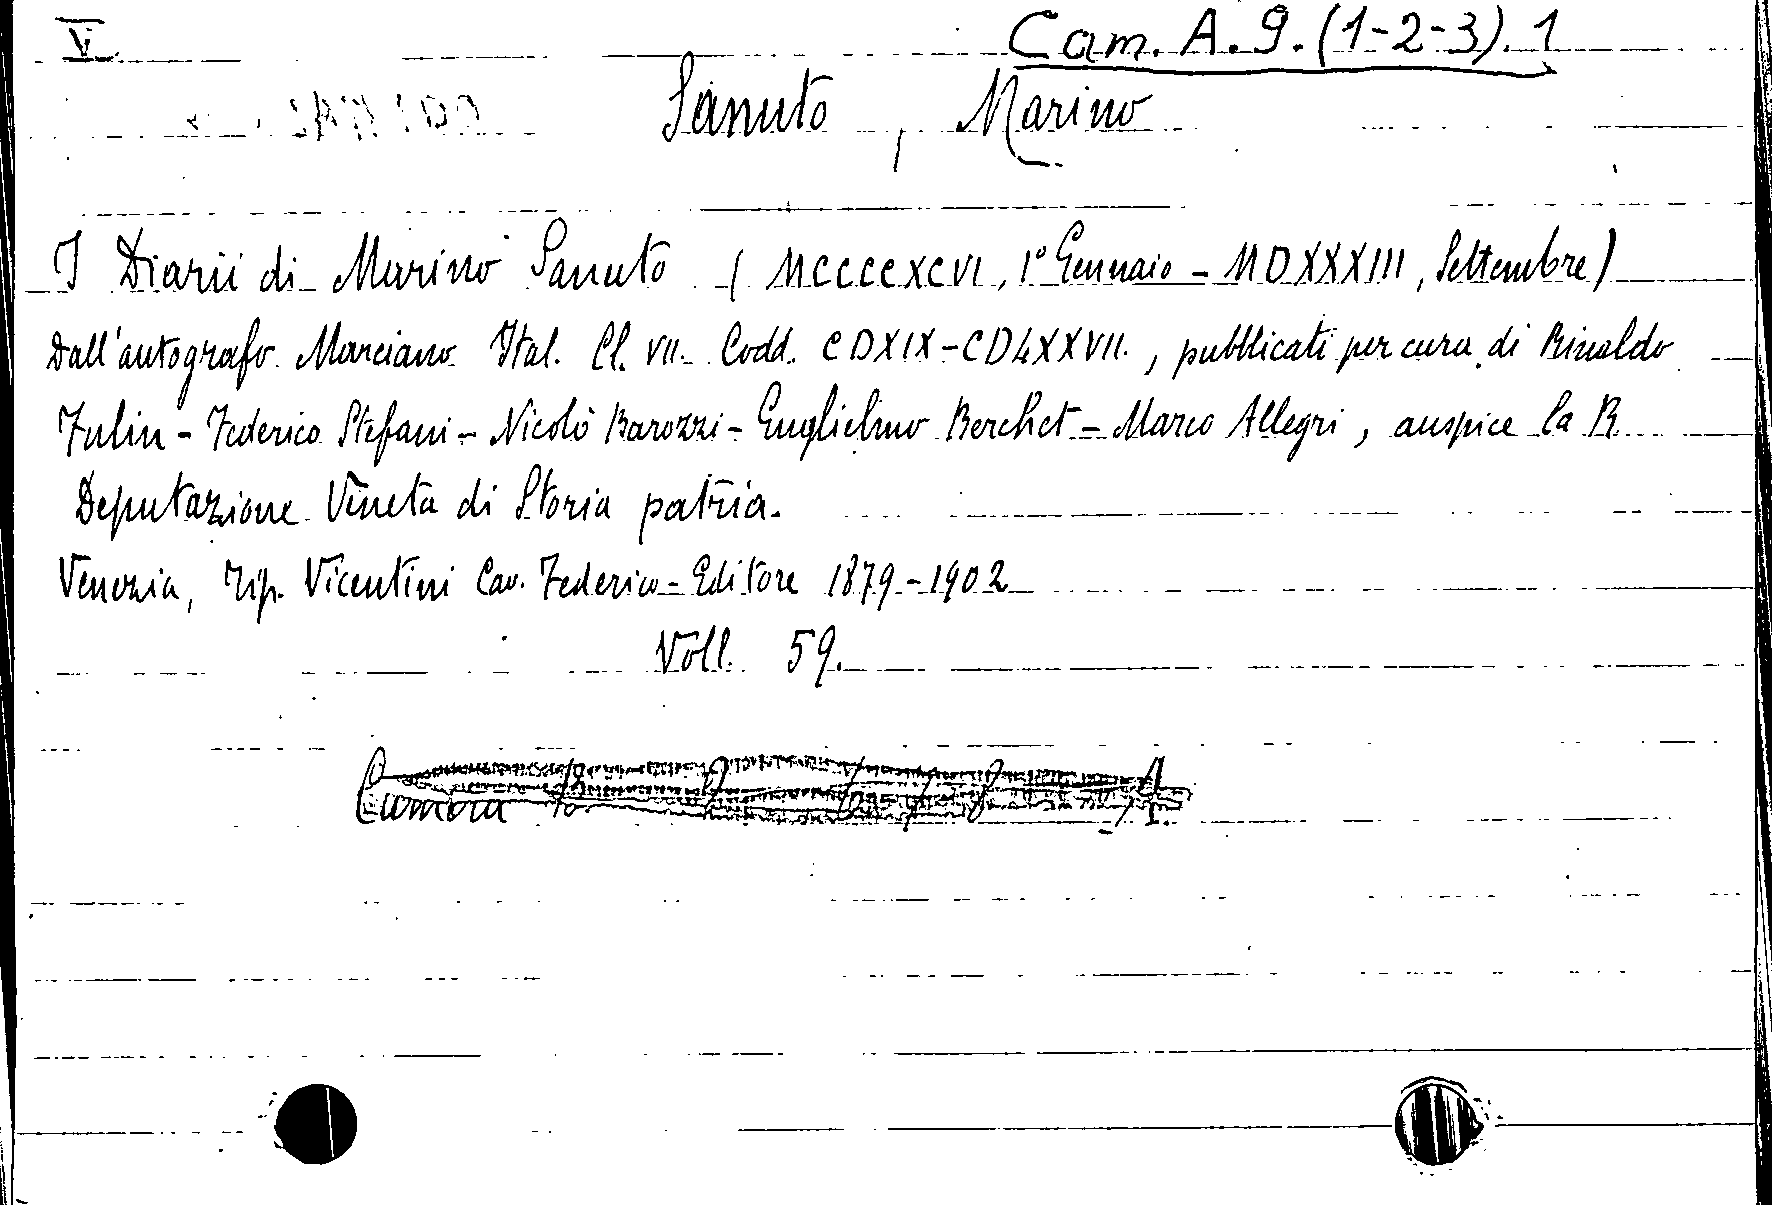 V.
Cam. A. 9. (1-2-3). 1
Sanuto, Marino
I Diarii di Marino Sanuto (MCCCCXCVI, 1° Gennaio - MDXXXIII, Settembre)
Dall'autografo Marciano Ital. Cl. VII. Codd. CDXIX-CDLXXVII., pubblicati per cura di Rinaldo
Fulin - Federico Stefani - Nicolò Barozzi - Guglielmo Berchet - Marco Allegri, auspice la R.
Deputazione Veneta di Storia patria.
Venezia, Tip. Vicentini Cav. Federico - Editore 1879-1902
Voll. 59.